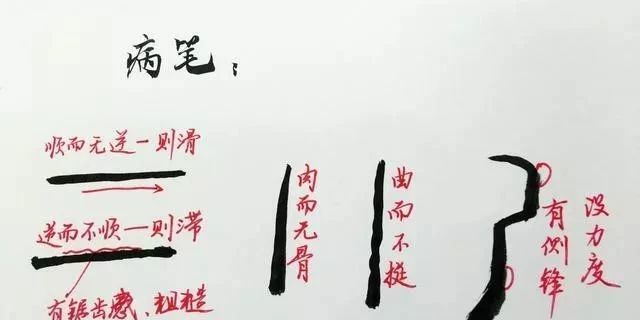 病笔：
顺而无逆一则滑
逆而不顺一则滞
有锯齿感、粗糙
肉而无骨
曲而不挺
有侧锋
没力度